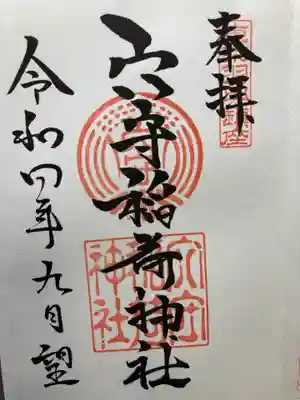 奉拝
穴守稲荷神社
令和四年九月望
穴守
稲荷
神社